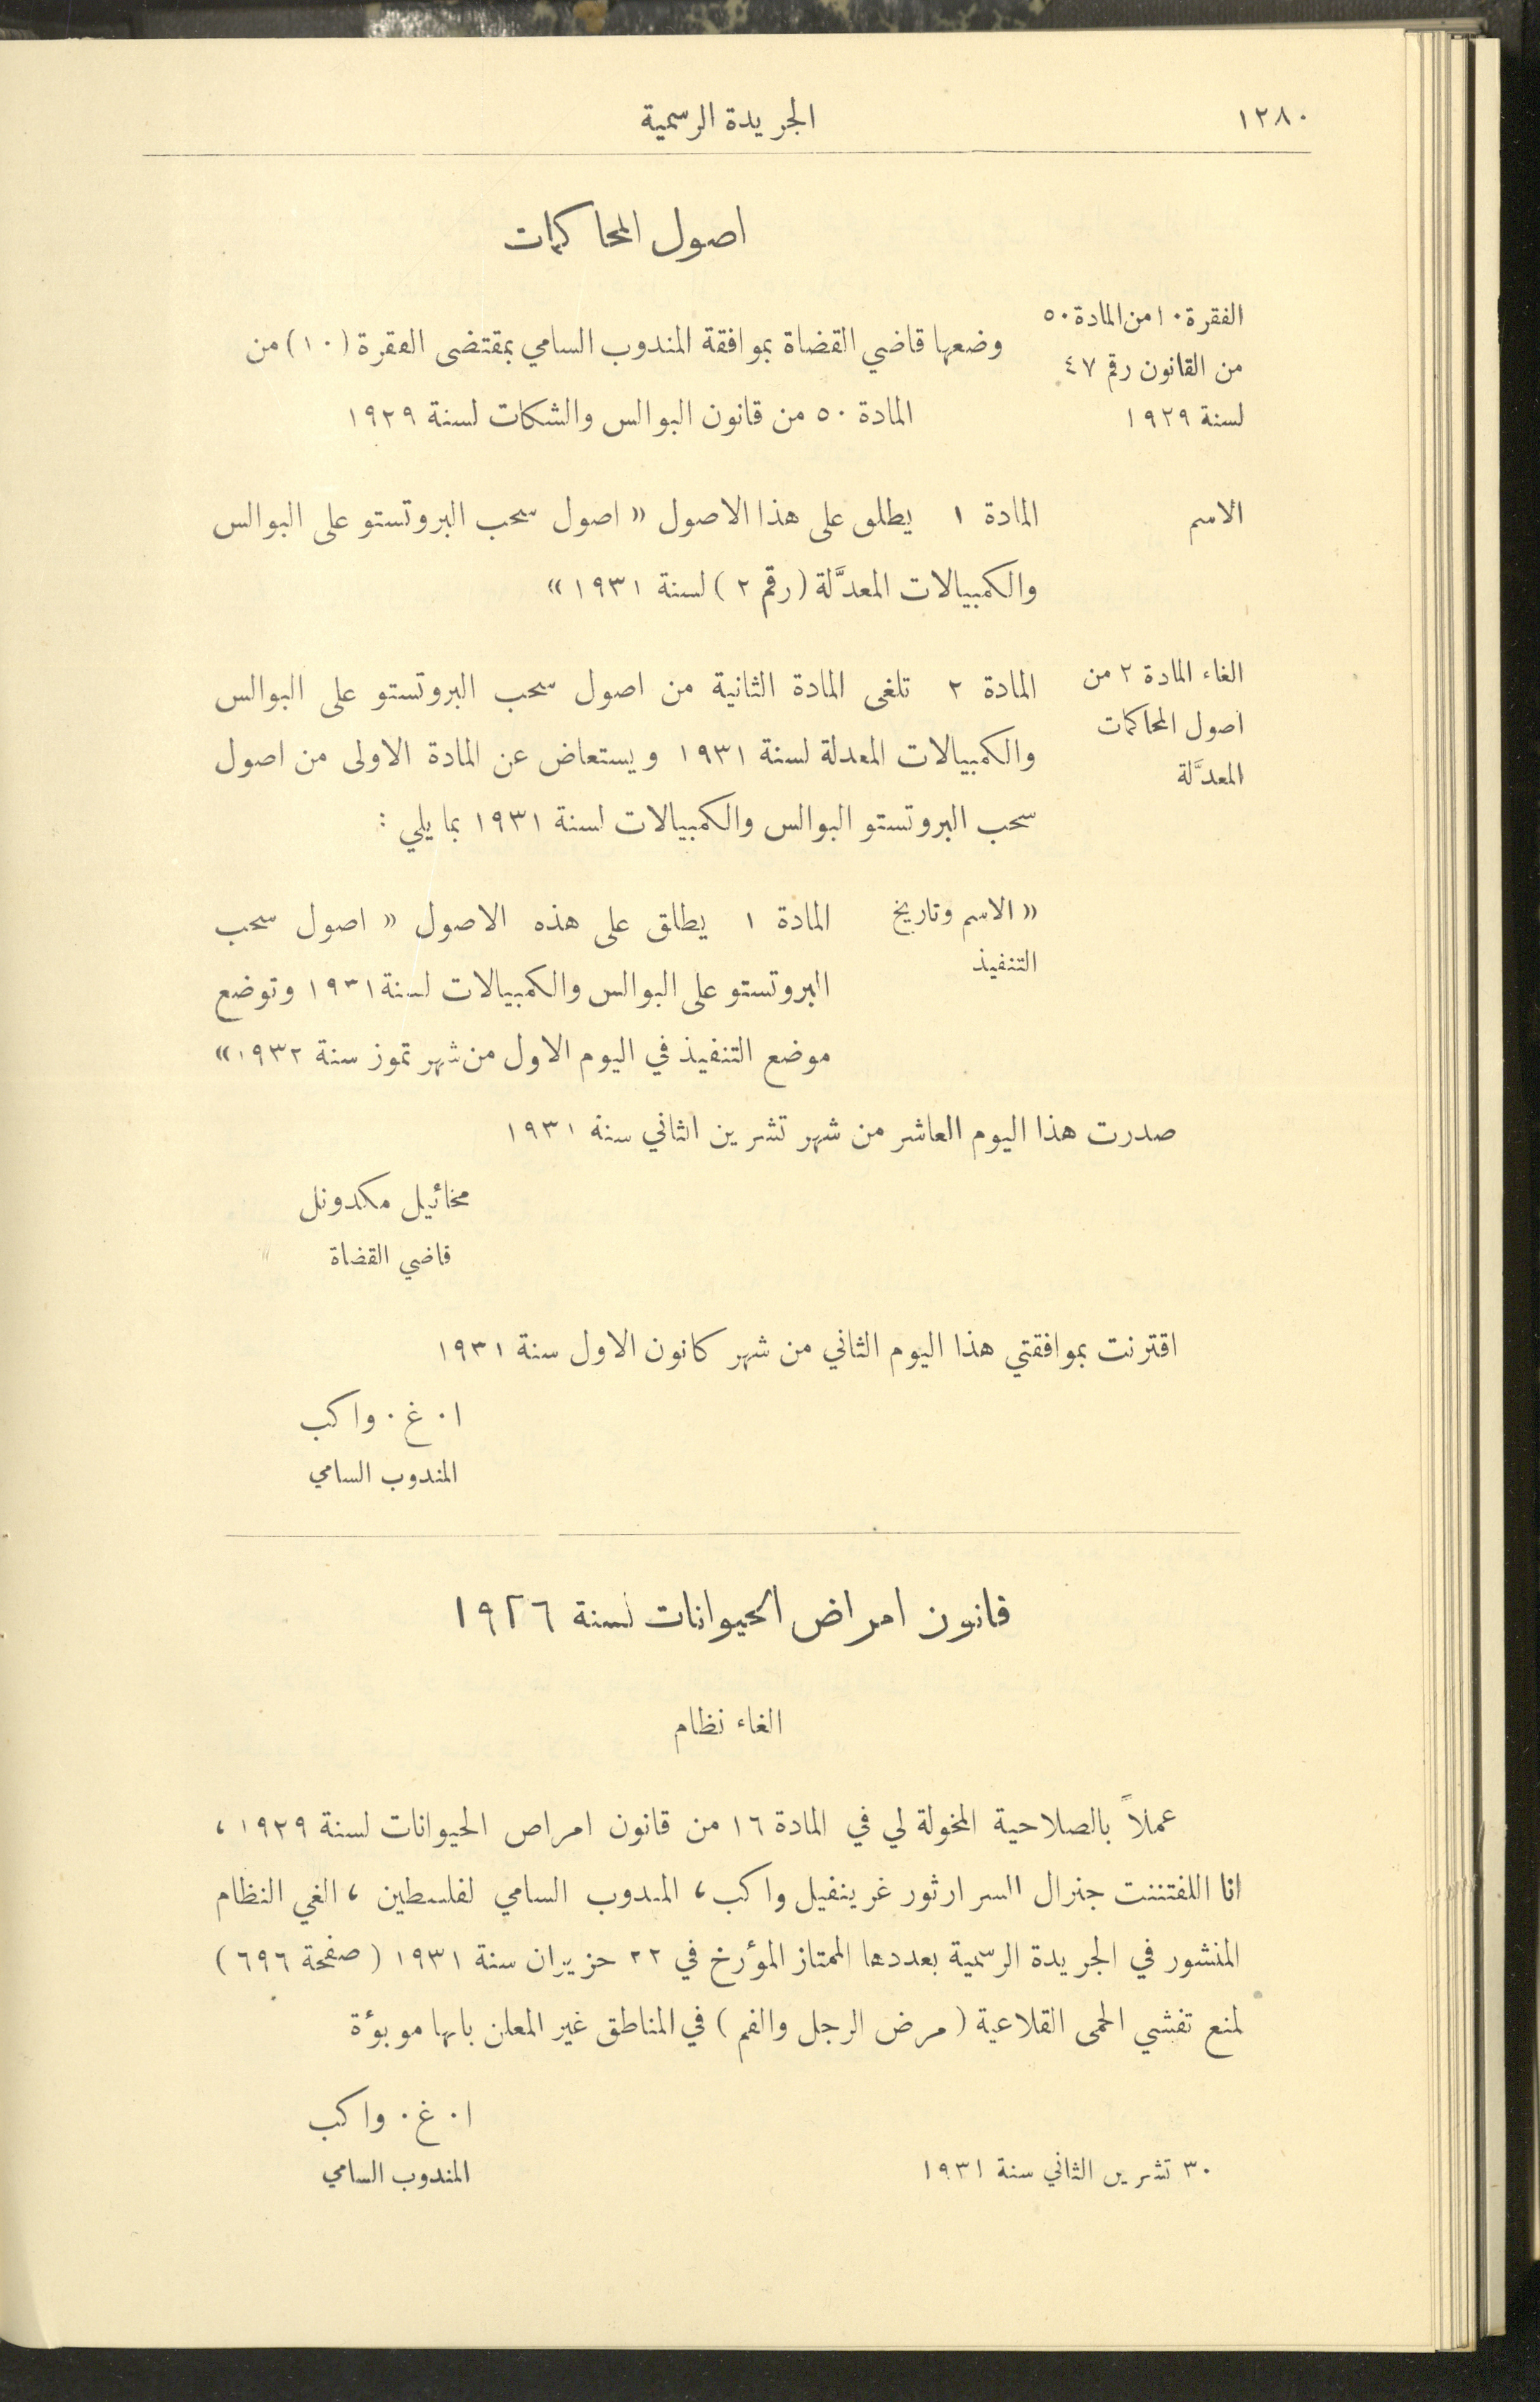 ١٢٨٠
الجريدة الرسمية
اصول المحاكمات
الفقرة ١٠ من المادة ٥٠
من القانون رقم ٤٧
لسنة ١٩٢٩
وضعها قاضي القضاة بموافقة المندوب السامي بمقتضى الفقرة (١٠) من
المادة ٥٠ من قانون البوالس والشكات لسنة ١٩٢٩
الاسم
المادة ١ يطلق على هذا الاصول « اصول سحب البروتستو على البوالس
والكمبيالات المعدَّلة (رقم ٢) لسنة ١٩٣١ »
الغاء المادة ٢ من
اصول المحاكمات
المعدَّلة
المادة ٢ تلغى المادة الثانية من اصول سحب البروتستو على البوالس
والكمبيالات المعدلة لسنة ١٩٣١ ويستعاض عن المادة الاولى من اصول
سحب البروتستو البوالس والكمبيالات لسنة ١٩٣١ بما يلي :
« الاسم وتاريخ
التنفيذ
المادة ١ يطلق على هذه الاصول « اصول سحب
البروتستو على البوالس والكمبيالات لسنة ١٩٣١ وتوضع
موضع التنفيذ في اليوم الاول من شهر تموز سنة ١٩٣٢ »
صدرت هذا اليوم العاشر من شهر تشرين الثاني سنة ١٩٣١
مخائيل مكدونل
قاضي القضاة
اقترنت بموافقتي هذا اليوم الثاني من شهر كانون الاول سنة ١٩٣١
ا . غ . واكب
المندوب السامي
قانون امراض الحيوانات لسنة ١٩٢٦
الغاء نظام
عملاً بالصلاحية المخولة لي في المادة ١٦ من قانون امراض الحيوانات لسنة ١٩٢٩ ،
انا اللفتننت جنرال السر ارثور غرينفيل واكب ، المندوب السامي لفلسطين ، الغي النظام
المنشور في الجريدة الرسمية بعددها الممتاز المؤرخ في ٢٢ حزيران سنة ١٩٣١ ( صفحة ٦٩٦ )
لمنع تفشي الحمى القلاعية ( مرض الرجل والفم ) في المناطق غير المعلن بانها موبوؤة
ا . غ . واكب
المندوب السامي
٣٠ تشرين الثاني سنة ١٩٣١